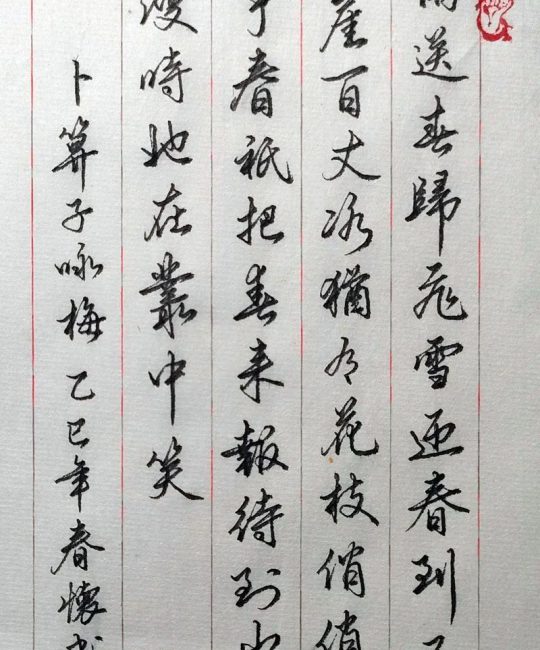 送春歸飛雪迎春到
崖百丈冰猶有花枝俏俏
春祇把春来報待到山
時她在叢中笑
卜算子咏梅乙巳年春懷書